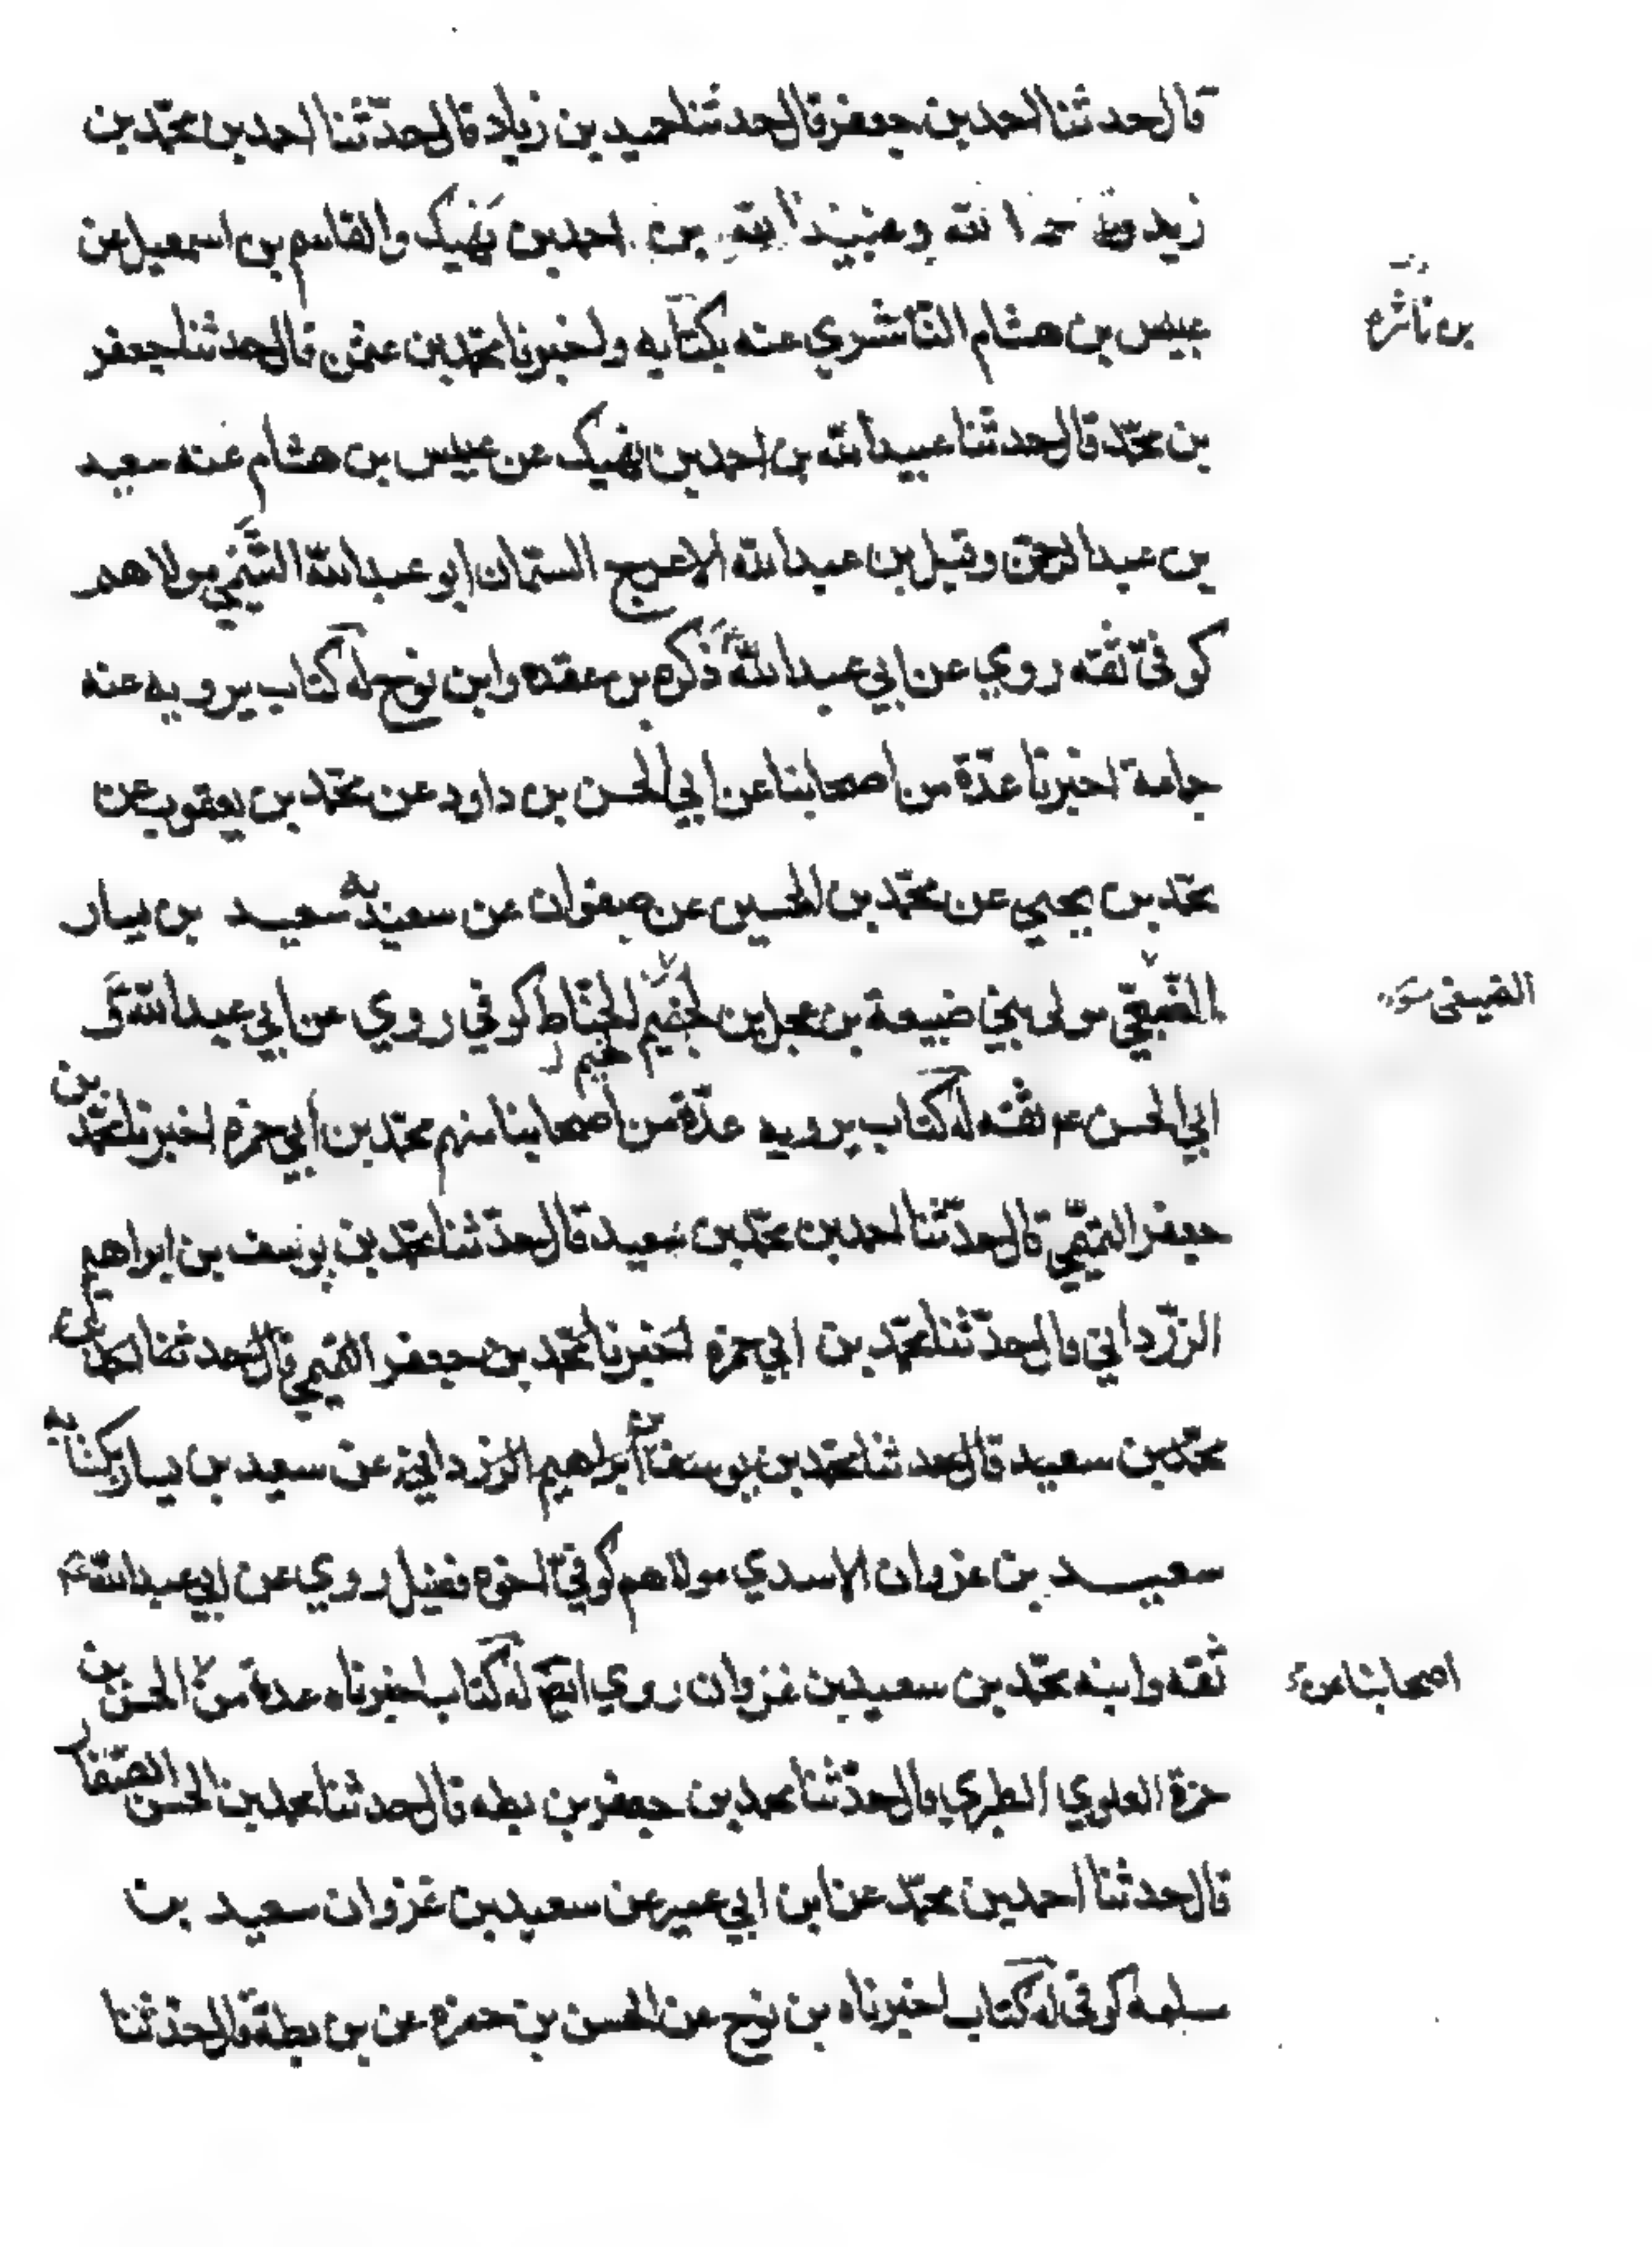 قال حدثنا احمد بن جعفر قال حدثنا حميد بن زياد قال حدّثنا احمد بن محمّد بن
زيد وعبيد الله بن احمد بن نَهيك والقاسم بن اسمعيل عن
عبيس بن هشام النّاشري عنه بكتابه واخبرنا محمّد بن عثمن قال حدثنا جعفر
بن ناشره
بن محمّد قال حدثنا عبيد الله بن احمد بن نهيك عن عبيس بن هشام عنه سعيد
بن عبد الرحمن وقيل بن عبد الله الاعرج السمّان ابو عبد الله التَّيَمي مولاهم
كوفىّ ثقه روي عن ابي عبد الله ذكره بن عقده وابن نوح له كتاب يرويه عنه
جماعة اخبرنا عدّة من اصحابنا عن ابي الحسن بن داود عن محمّد بن يعقوب عن
محمّد بن يحيي عن محمّد بن الحسين عن صفوان عن سعيد به سعيد بن يسار
الضّبيعي مولى بني ضبيعة بن عجل بن لجيم الحنّاط كوفي روي عن ابي عبد الله و
لجيم
الضبيعى
ابي الحسن عم ثقه له كتاب يرويه عدّة من اصحابنا منهم محمّد بن ابي حمزه اخبرنا محمّد بن
جعفر التميمّي قال حدّثنا احمد بن محمّد بن سعيد قال حدّثنا محمّد بن يوسف بن ابراهيم
الزرّداني قال حدّثنا محمّد بن ابي حمزه اخبرنا محمّد بن جعفر التميمي قال حدثنا احمد بن
محمّد بن سعيد قال حدثنا محمّد بن يوسف بن ابراهيم الورداني عن سعيد بن يسار بكتابه
سعيد بن غزوان الاسدي مولاهم كوفيّ اخوه فضيل روي عن ابي عبد الله عم
ثقه وابنه محمّد بن سعيد بن غزوان روي ايضً له كتاب اخبرناه عدة من الحسن بن
اصحابنا عن
حمزة العلوي الطبري قال حدّثنا محمد بن جعفر بن بطه قال حدثنا محمد بن الحسن الصّفار
قال حدثنا احمد بن محمّد عن ابن ابي عمير عن سعيد بن غزوان سعيد بن
سلمه كوفى له كتاب اخبرناه بن نوح عن الحسن بن حمزه عن بن بطة قال حدثنا